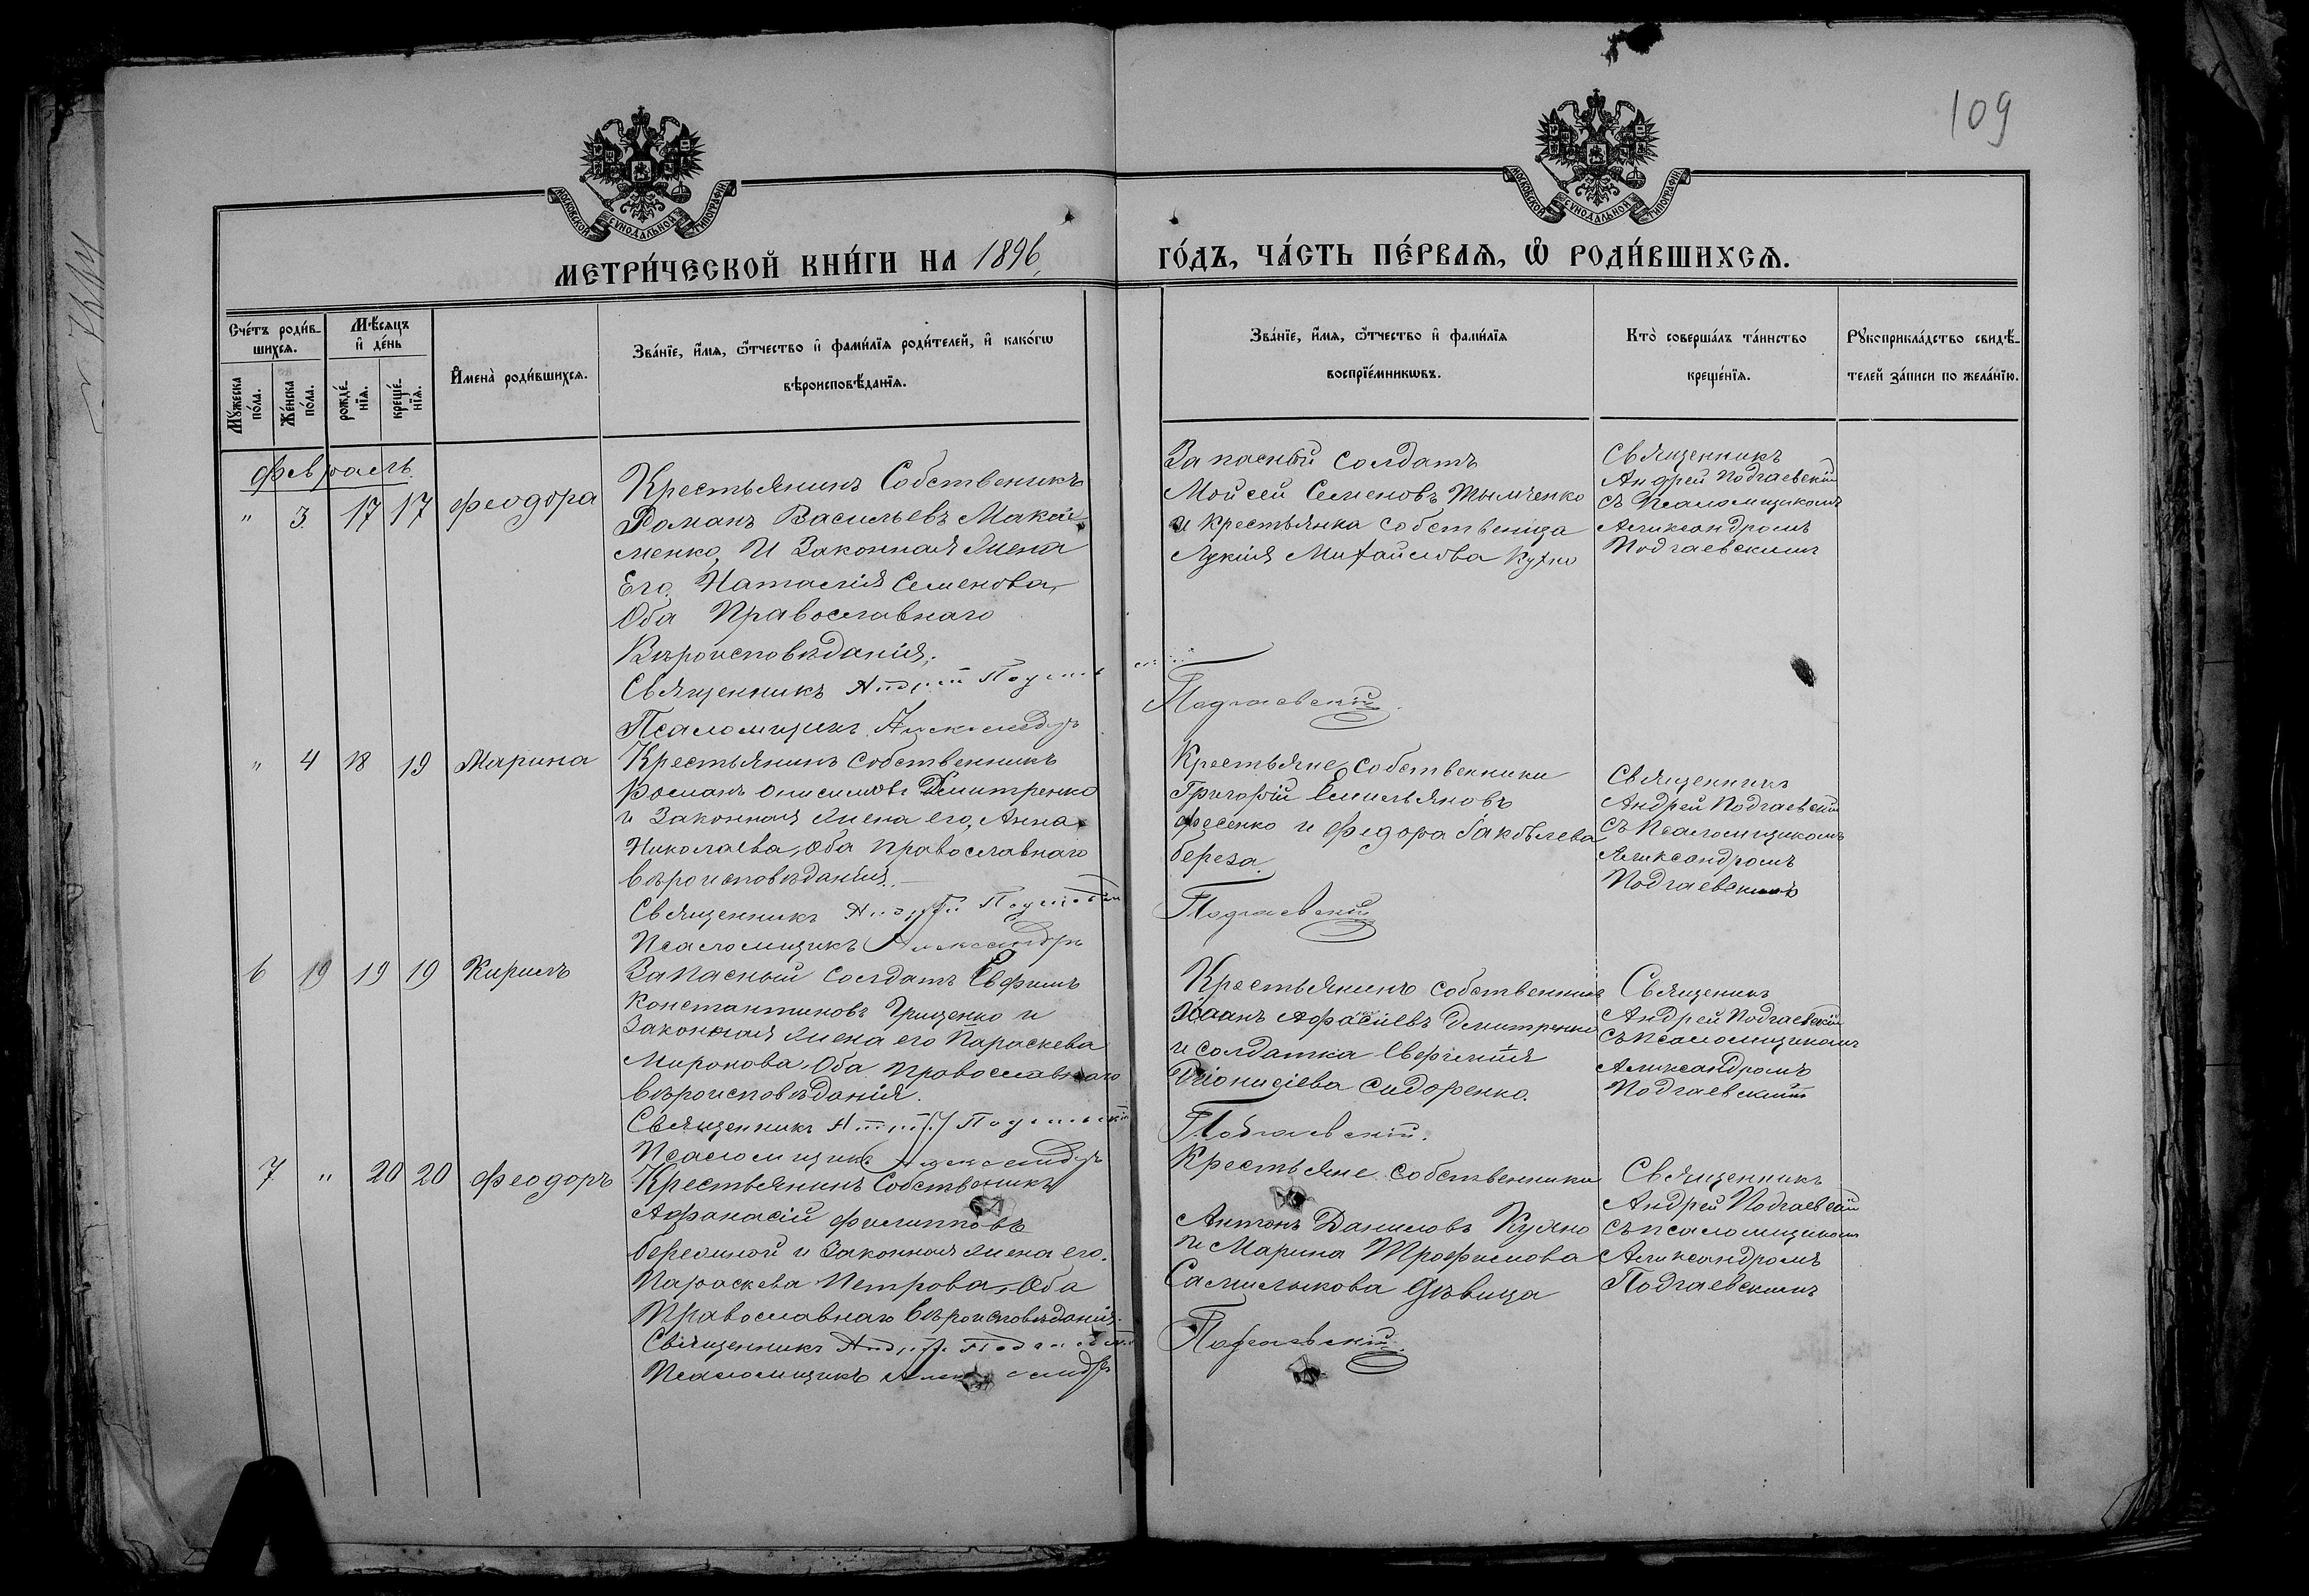 109
МОСКОВСКОЙ СУНОДАЛЬНОЙ ТИПОГРАФІИ
МОСКОВСКОЙ СУНОДАЛЬНОЙ ТИПОГРАФІИ
МЕТРИ́ЧЕСКОЙ КНИ́ГИ НА 1896
ГО́ДЪ, ЧА́СТЬ ПЕ́РВАѦ, Ѡ҆ РОДИ́ВШИХСѦ.
Сче́тъ роди́в-
шихсѧ.
Мꙋ́жеска
по́ла.
Же́нска
по́ла.
Мѣ́сѧцъ
и҆ де́нь
рожде́-
нїѧ.
креще́-
нїѧ.
И҆мена̀ роди́вшихсѧ.
Зва́нїе, и҆́мѧ, ѻ҆́тчество и҆ фами́лїѧ роди́телей, и҆ како́гѡ
вѣроисповѣ́данїѧ.
Зва́нїе, и҆́мѧ, ѻ҆́тчество и҆ фами́лїѧ
воспрїе́мникѡвъ.
Кто̀ соверша́лъ та́инство
креще́нїѧ.
Рꙋкоприкла́дство свидѣ́-
телей за́писи по жела́нїю.
Февраль
" 3 17 17 Феодора
Крестьянинъ Собственикъ
Романъ Васильевъ Макси
менко, И Законная Жена
Его, Наталія Семенова,
Оба Православнаго
Вѣроисповѣданія.
Священникъ Андрей
Псаломщикъ Александръ
Запасный солдатъ
Мойсей Семеновъ Тымченко
и крестьянка собственица
Лукія Михайлова Кухно
Подгаевскій
Священникъ
Андрей Подгаевскій
съ Псаломщикомъ
Александромъ
Подгаевскимъ
" 4 18 19 Марина
Крестьянинъ собственникъ
Романъ Онисимовъ Дмитренко
и Законная Жена его, Анна
Николаева, Оба Православнаго
вѣроисповѣданія.
Священникъ Андрей
Псаломщикъ Александръ
Крестьяне собственники
Григорій Емельяновъ
Фесенко и Федора Іаковлева
береза
Подгаевскій
Священникъ
Андрей Подгаевскій
Съ Псаломщикомъ
Александромъ
Подгаевскимъ
6 19 19 19 Кирилъ
Запасный солдатъ Евфимъ
Константиновъ Грищенко и
Законная Жена его Параскева
Миронова, Оба Православнаго
вѣроисповѣданія.
Священникъ
Псаломщикъ Александръ
Крестьянинъ собственникъ
Іоанъ Дмитренко
и солдатка Евфимія
Діонисіева Сидоренко.
Подгаевскій.
Священикъ
Андрей Подгаевскій
Съ псаломщикомъ
Александромъ
Подгаевскимъ
7 " 20 20 Феодоръ
Крестьянинъ Собственикъ
Афанасій Филипповъ
и Законная Жена его.
Параскева Петрова, Оба
Православнаго Вѣроисповѣданія.
Священникъ Андрей
Псаломщикъ
Крестьяне собственники
Антонъ Даниловъ Кухно
и Марина Трофимова
дѣвица
Подгаевскій.
Священникъ
Андрей Подгаевскій
Съ псаломщикомъ
Александромъ
Подгаевскимъ